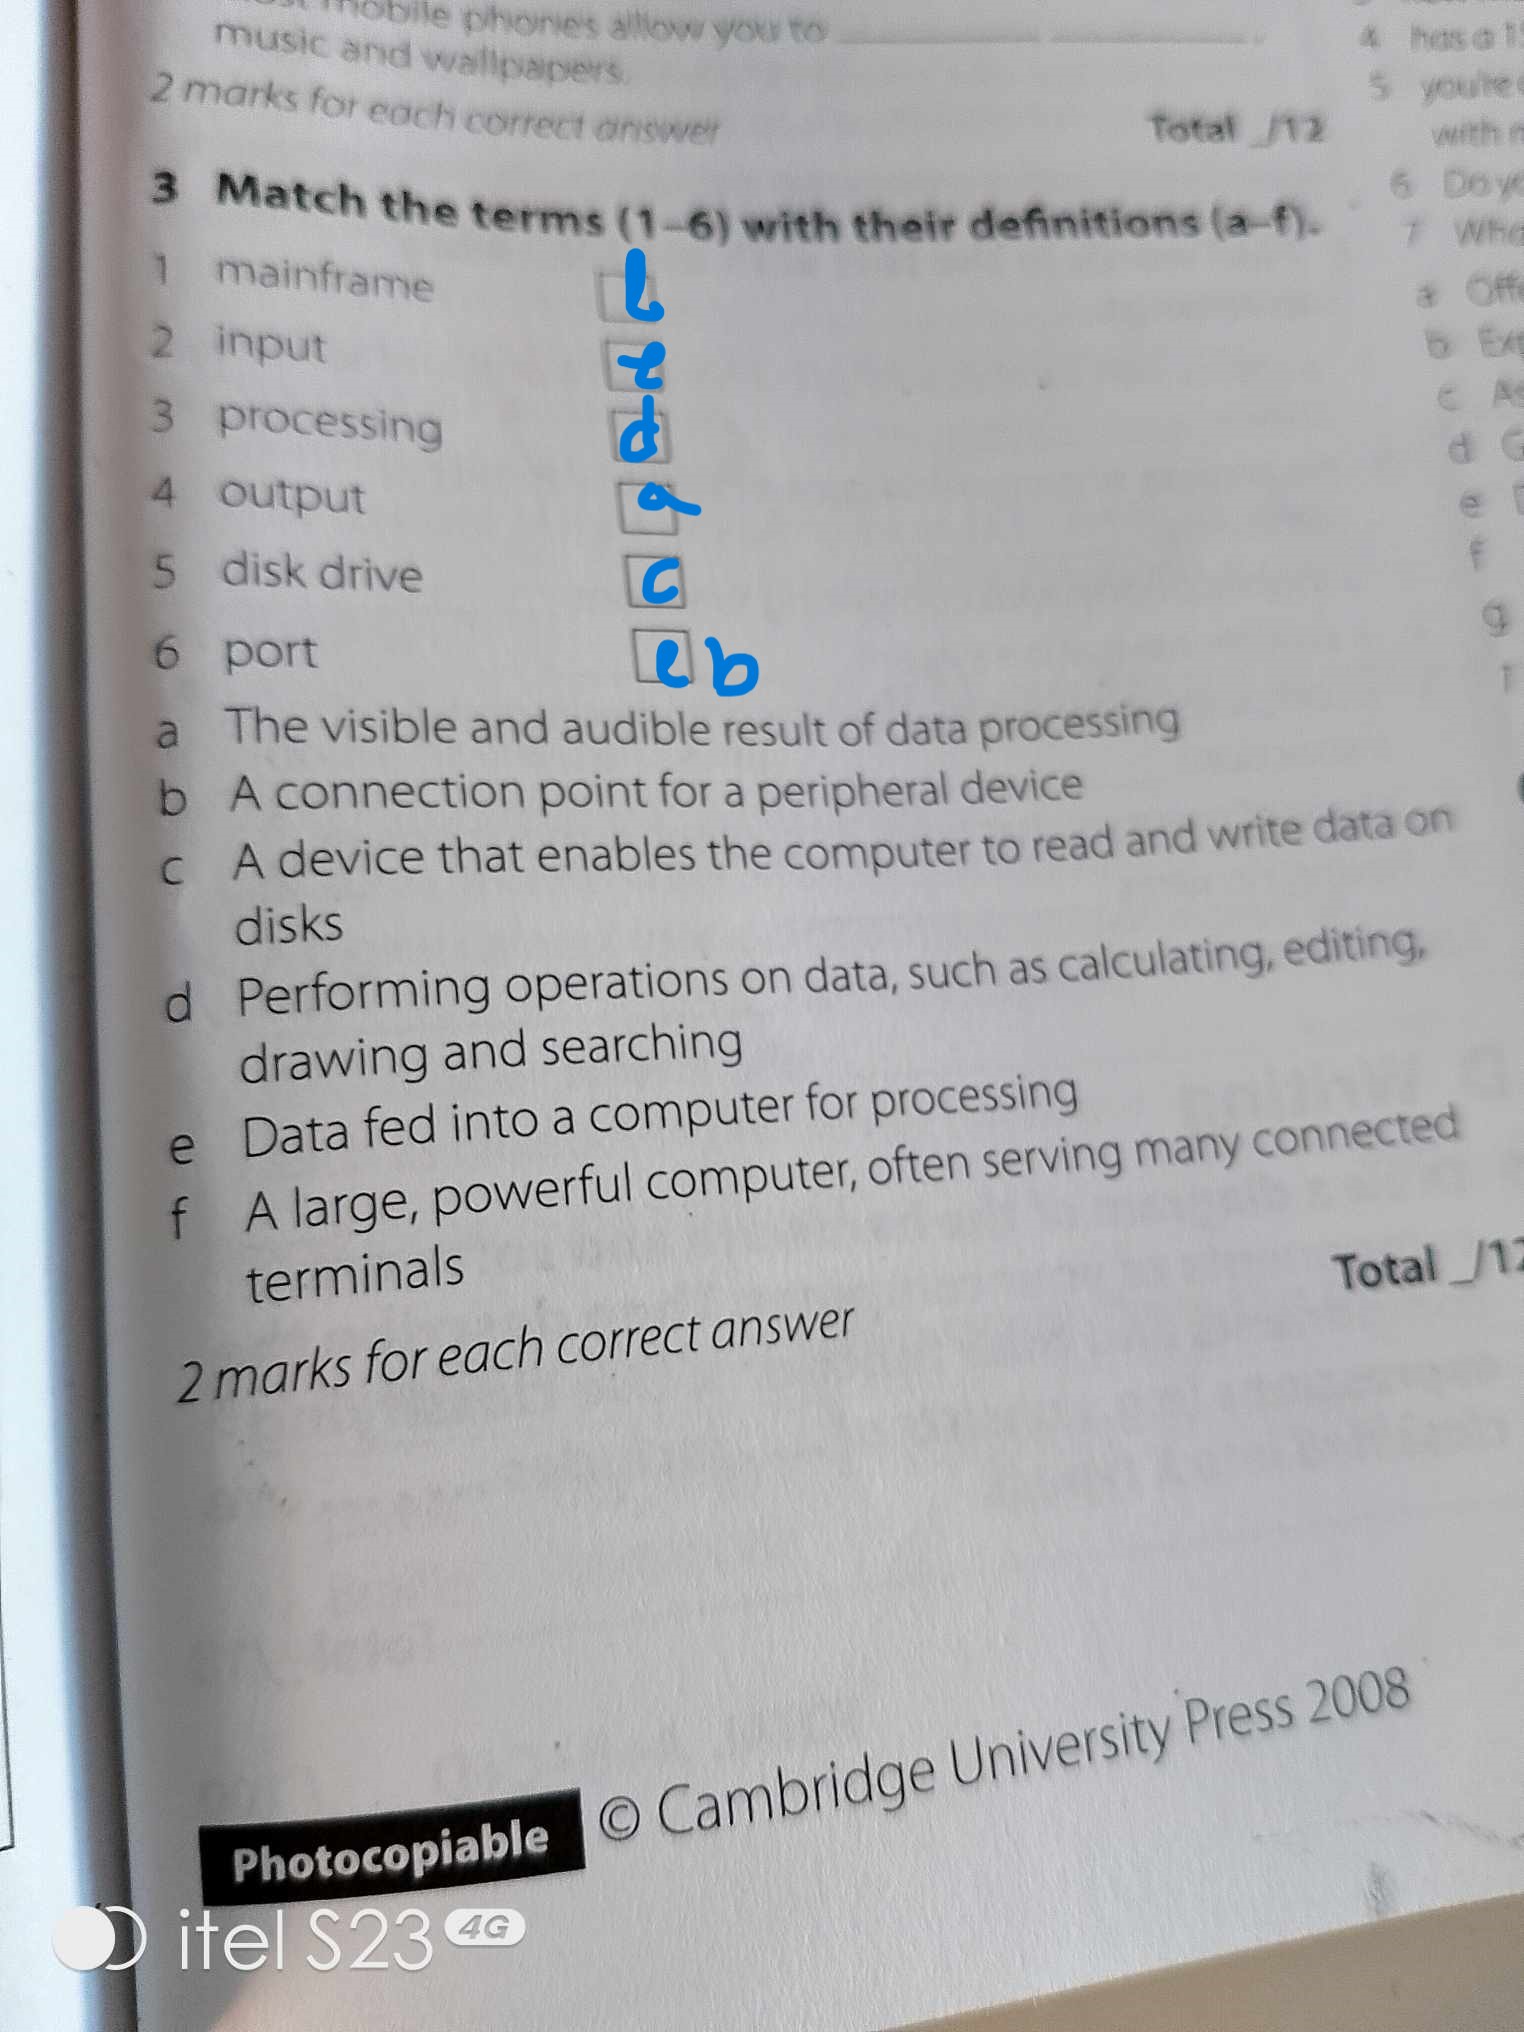 mobile phones allow you to
music and wallpapers.
2 marks for each correct answer
Total _/12
3 Match the terms (1–6) with their definitions (a–f).
1 mainframe
2 input
3 processing d
4 output a
5 disk drive c
6 port e b
a The visible and audible result of data processing
b A connection point for a peripheral device
c A device that enables the computer to read and write data on
disks
d Performing operations on data, such as calculating, editing,
drawing and searching
e Data fed into a computer for processing
f A large, powerful computer, often serving many connected
terminals
2 marks for each correct answer
Total _/12
4 has a
5 you're
with
6 Do
7
a
b
c
d
e
f
g
Photocopiable © Cambridge University Press 2008
itel S23 4G